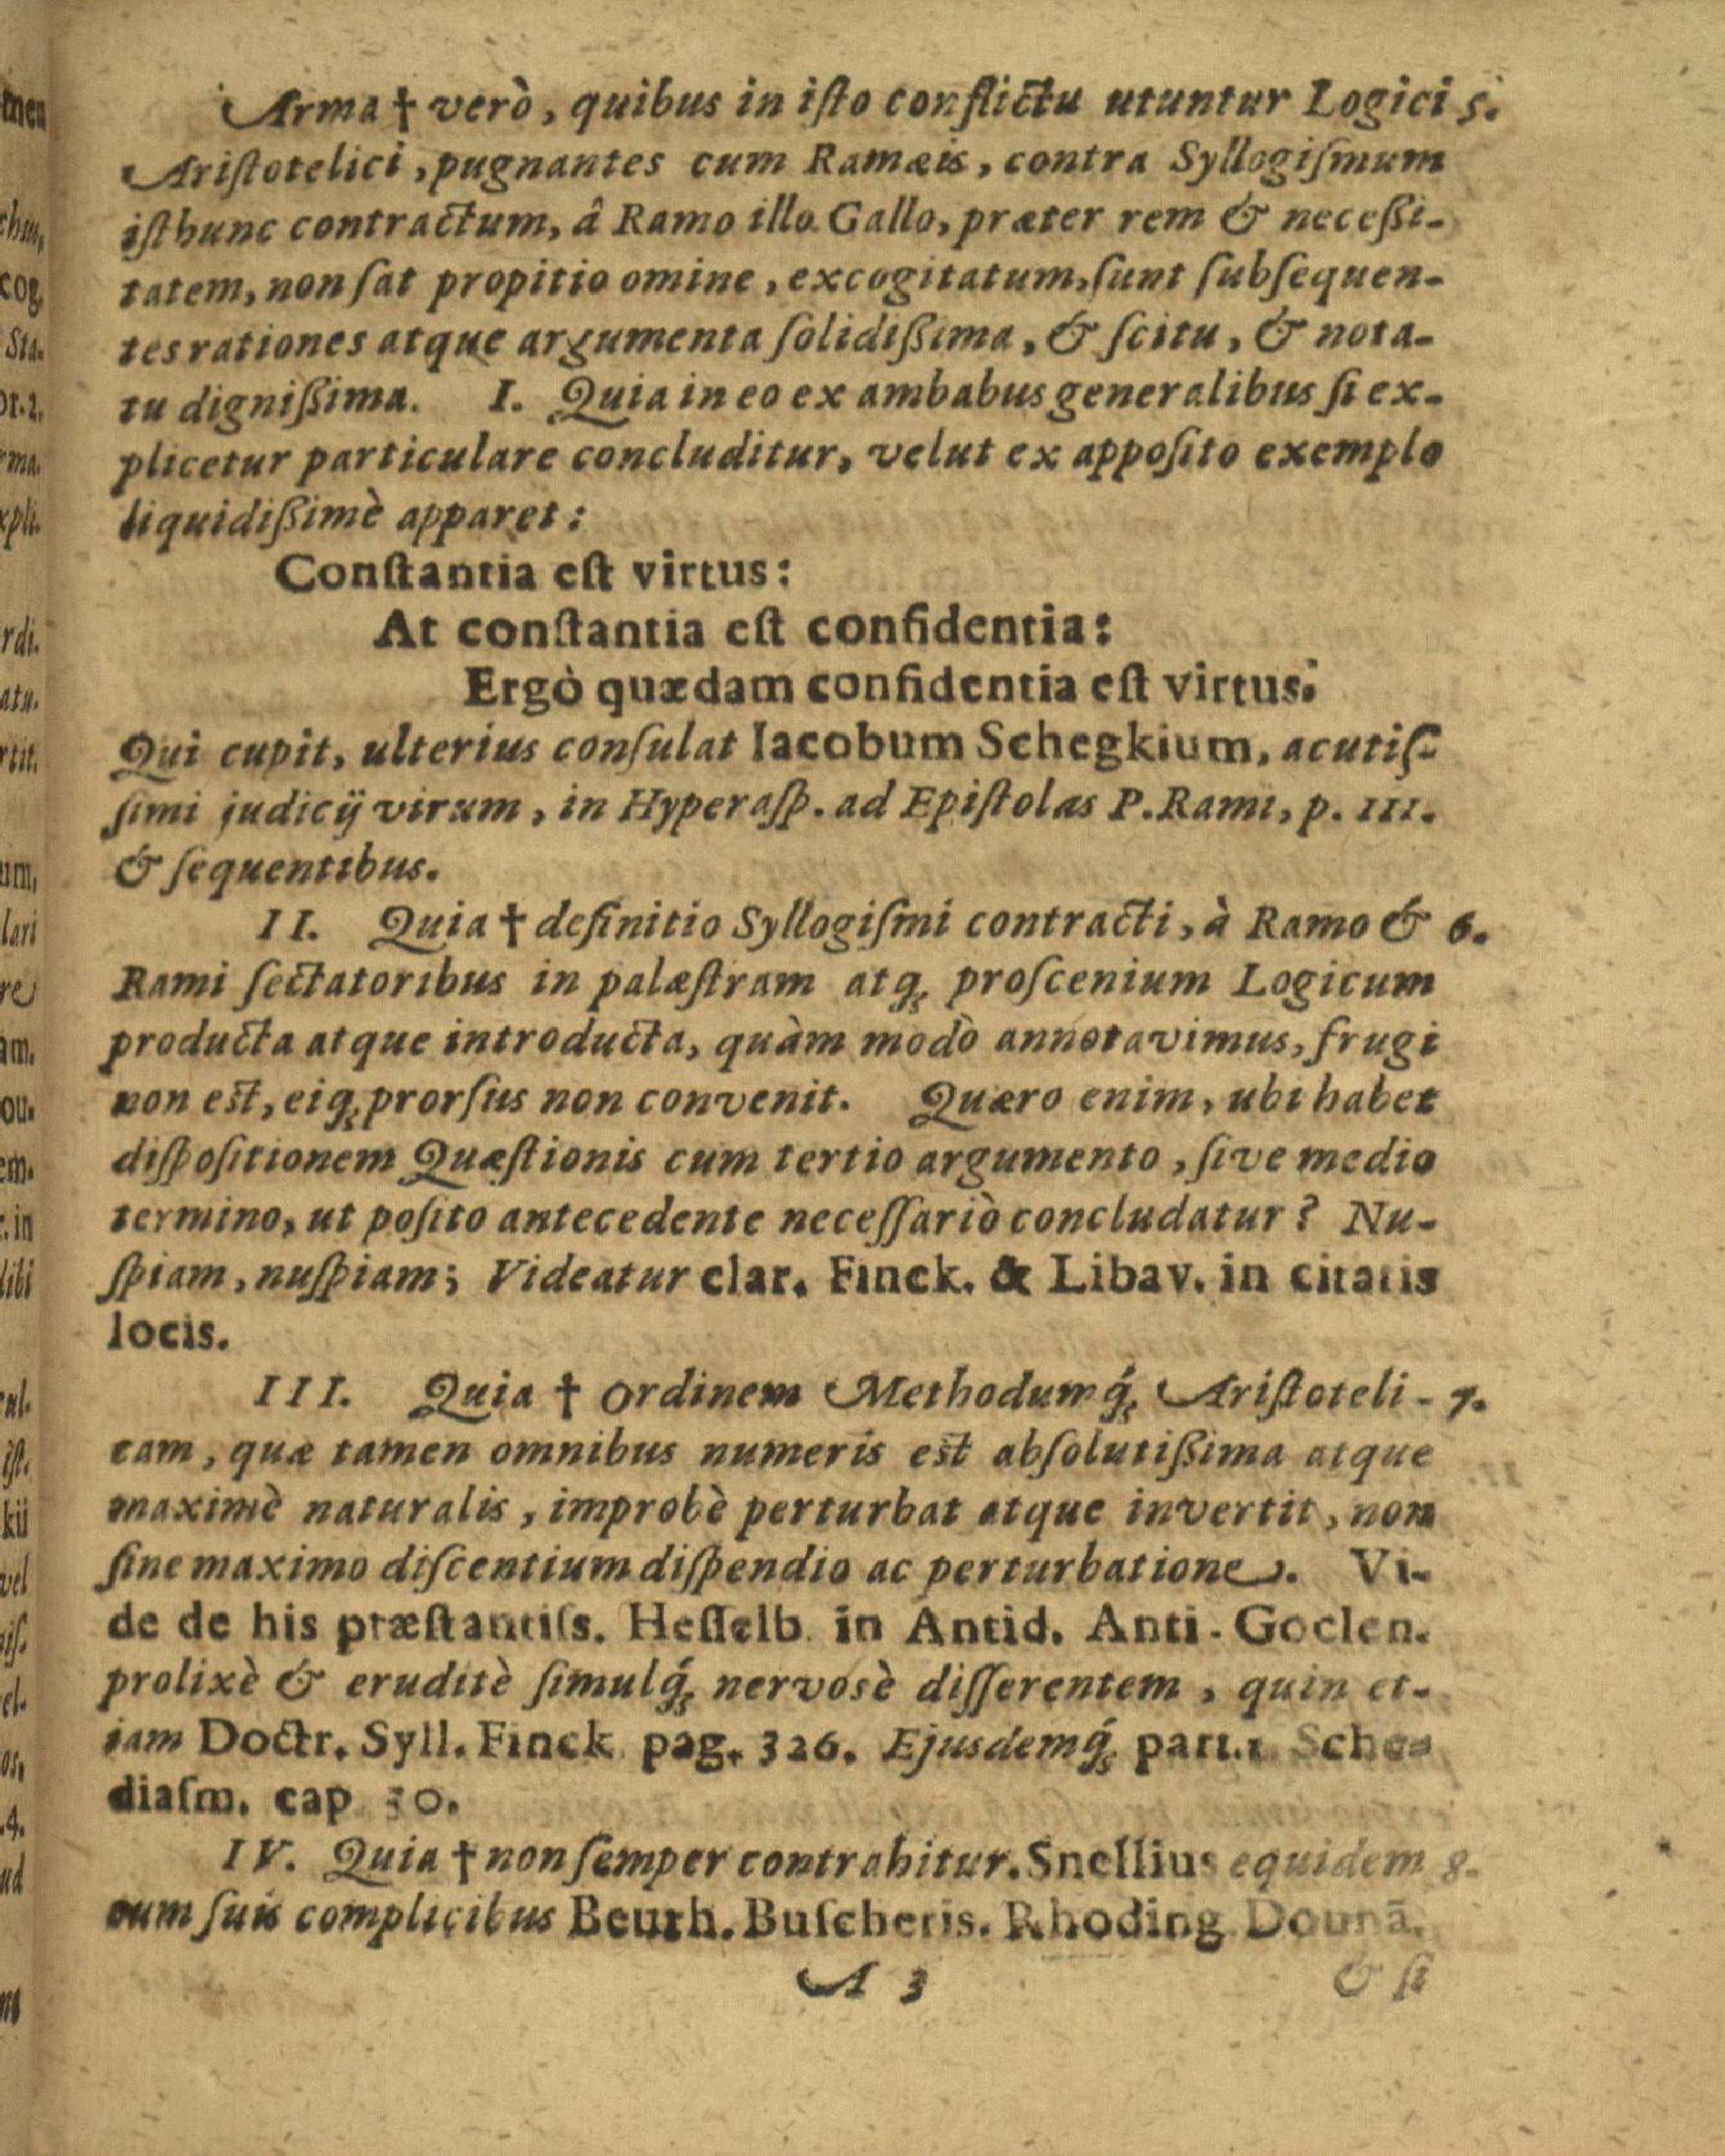 Arma † verò, quibus in iſto conflictu utuntur Logici 5.
Ariſtotelici, pugnantes cum Ramæis, contra Syllogiſmum
iſthunc contractum, â Ramo illo Gallo, præter rem & neceßi-
tatem, non ſat propitio omine, excogitatum, ſunt ſubſequen-
tes rationes atque argumenta ſolidißima, & ſcitu, & nota-
tu dignißima. I. Quia in eo ex ambabus generalibus ſi ex-
plicetur particulare concluditur, velut ex appoſito exemplo
liquidißimè apparet:
Conſtantia eſt virtus:
At conſtantia eſt confidentia:
Ergò quædam confidentia eſt virtus.
Qui cupit, ulterius conſulat Iacobum Schegkium, acutiſ-
ſimi judicij virum, in Hyperaſp. ad Epiſtolas P. Rami, p. III.
& ſequentibus.
II. Quia † definitio Syllogiſmi contracti, à Ramo & 6.
Rami ſectatoribus in palæſtram atq; proſcenium Logicum
producta atque introducta, quàm modò annotavimus, frugi
non est, eiq; prorſus non convenit. Quæro enim, ubi habet
diſpoſitionem Quæſtionis cum tertio argumento, ſive medio
termino, ut poſito antecedente neceſſariò concludatur? Nu-
ſpiam, nuſpiam; Videatur clar. Finck. & Libav. in citatis
locis.
III. Quia † ordinem Methodumq́; Ariſtoteli- 7.
cam, quæ tamen omnibus numeris est abſolutißima atque
maximè naturalis, improbè perturbat atque invertit, non
ſine maximo diſcentium diſpendio ac perturbatione. Vi-
de de his præſtantiſs. Heſſelb. in Antid. Anti-Goclen.
prolixè & eruditè ſimulq́; nervosè diſſerentem, quin et-
iam Doctr. Syll. Finck pag. 326. Ejusdemq́; part. 1 Sche-
diaſm. cap 30.
IV. Quia † non ſemper contrahitur. Snellius equidem 8.
cum ſuis complicibus Beurh. Buſcheris. Rhoding Dounā.
A 3 & ſi